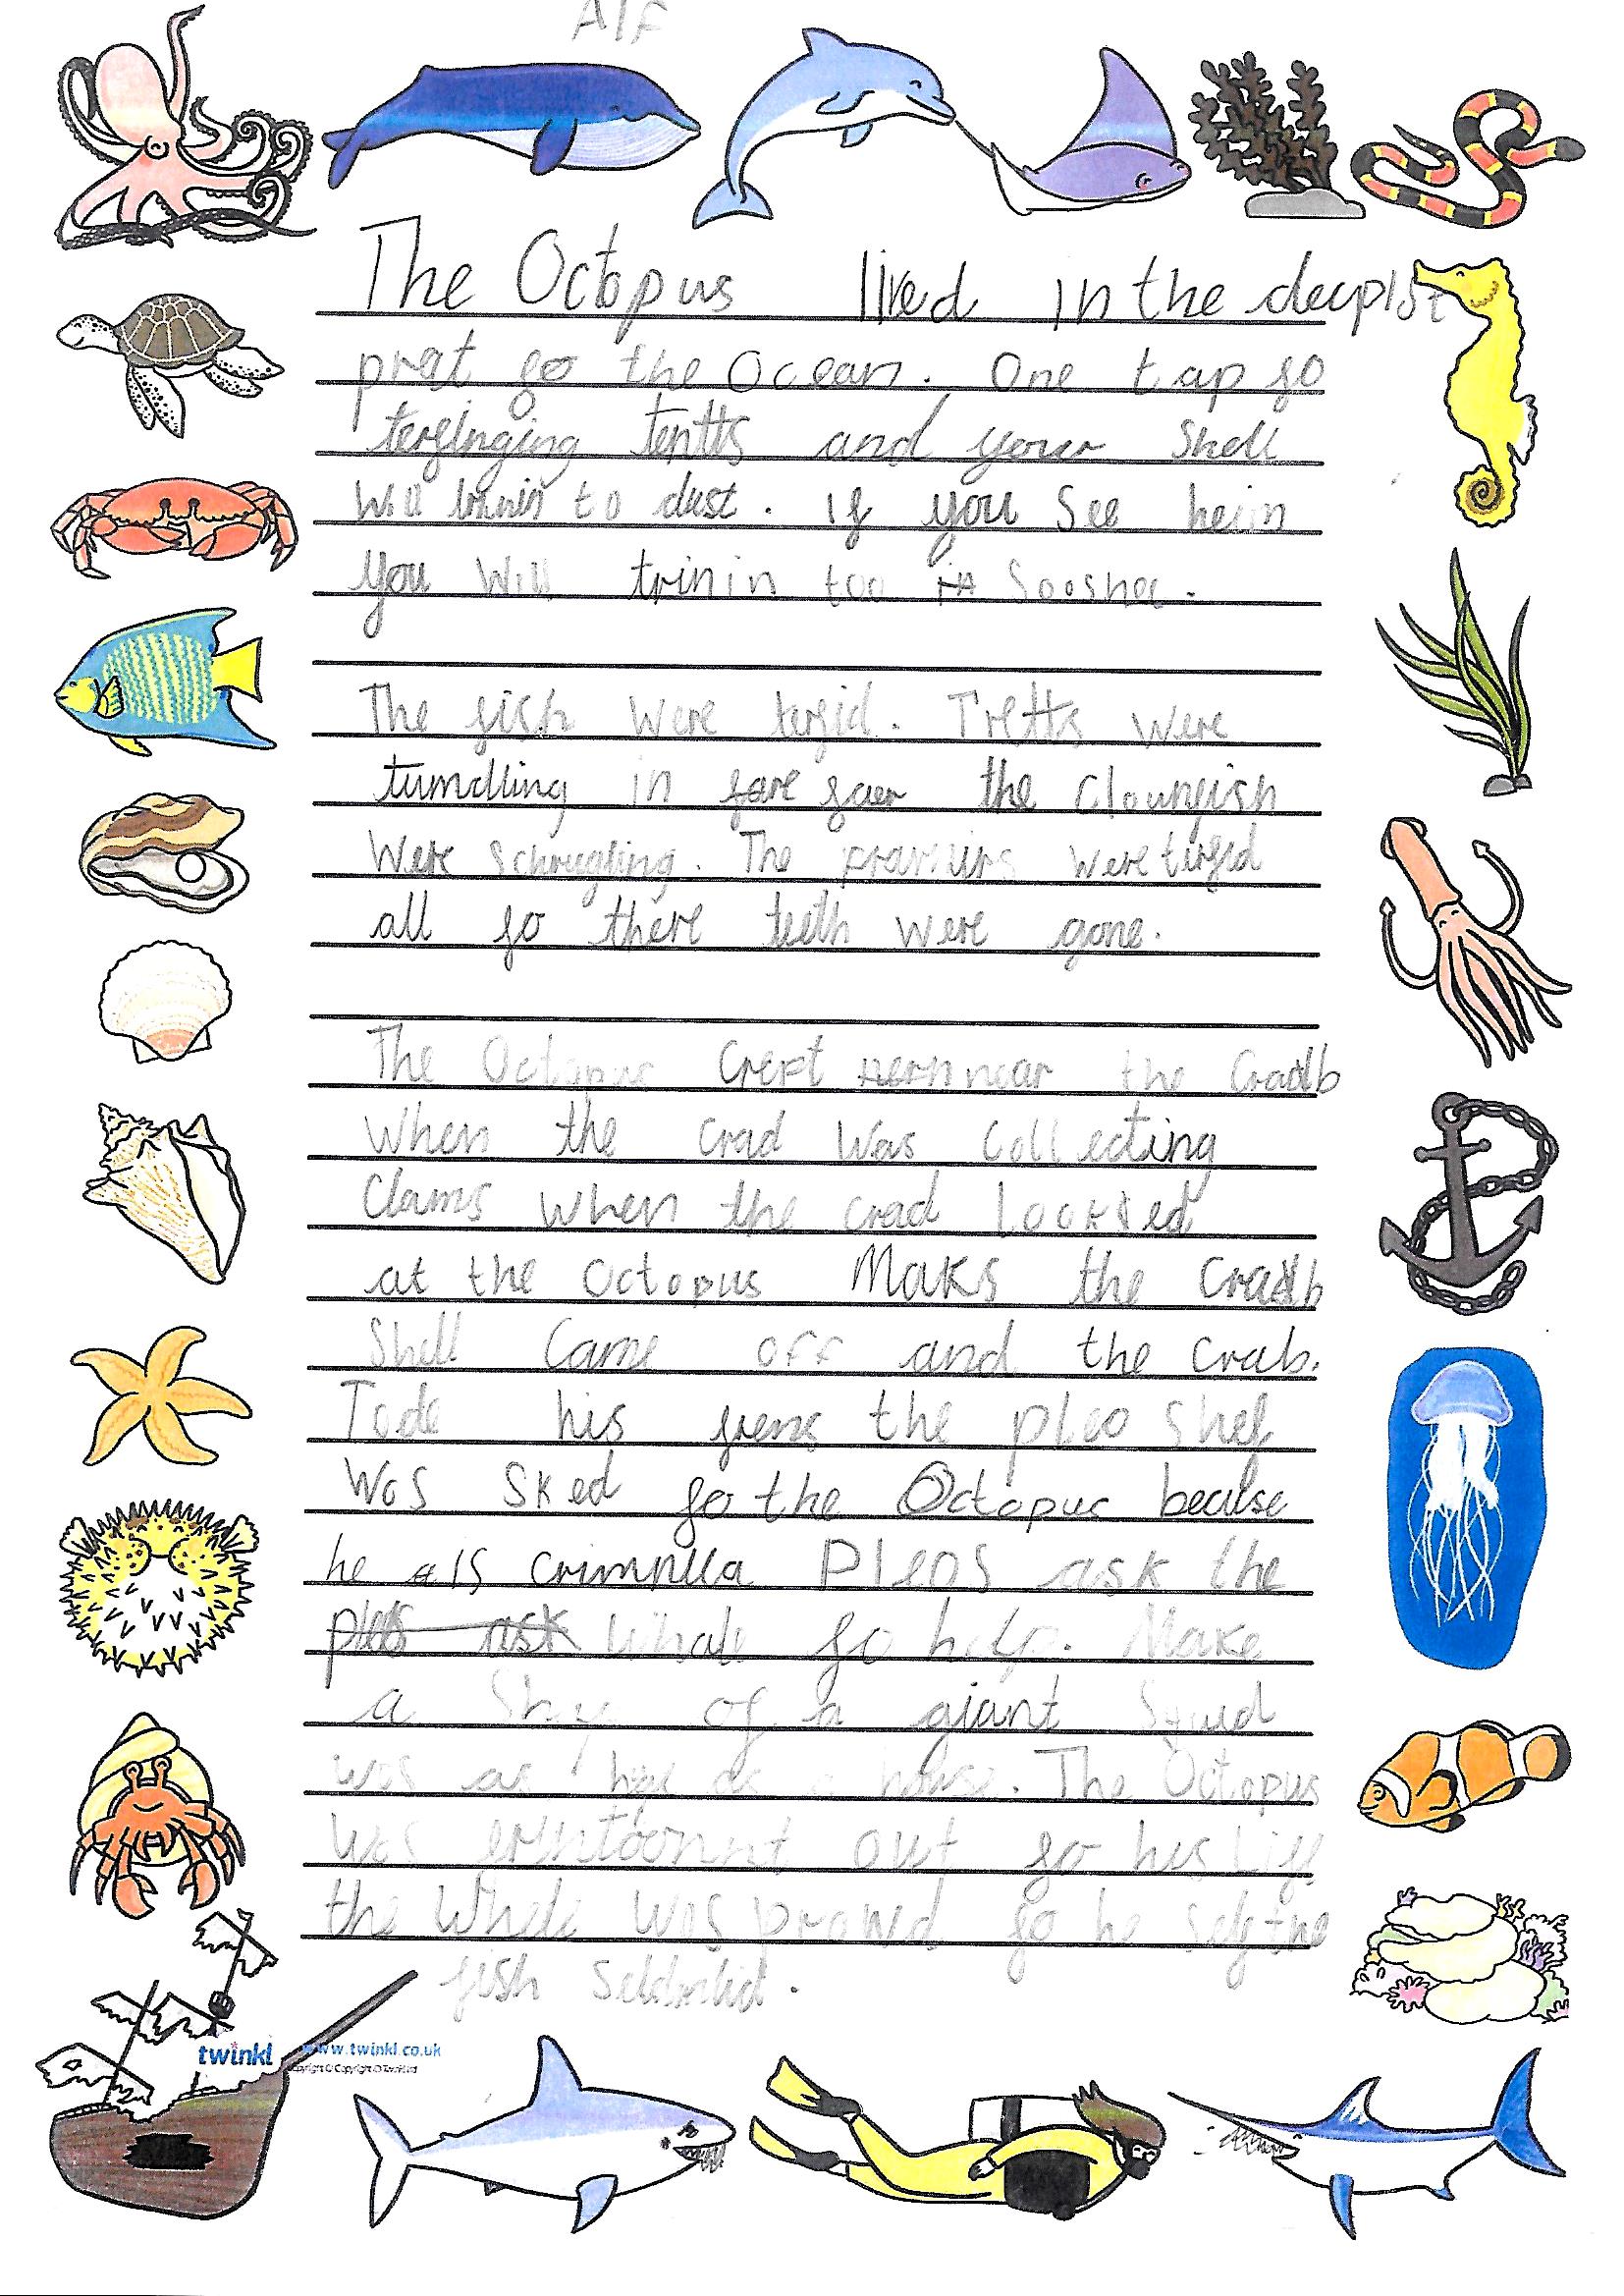 Alf
The Octopus lived in the deepist
prat fo the Ocean. One tap fo
terfinging tentts and your Shell
Will to dust. If you See heim
you Will trinin too in Sooshee.
The fish were terfid. Tretts were
tumdling in fare faer the Clounfish
Were Schrugling. The were terfid
all fo there teeth were gone.
The Octopus Crept nern near the Cradb
When the crad was Collecting
Clams when the crad Lookted
at the Octopus Maks the Cradb
Shell Came off and the Crab.
Tode his frens the pleo Shef
Wos Sked fo the Octopus beculse
he is crimnlla Pleos ask the
ples ask Whale fo help. Make
a of a giant Squid
was as as a house. The Octopus
was out fo his Liff
the Whale Wos prowd fo he the
fish
twinkl www.twinkl.co.uk